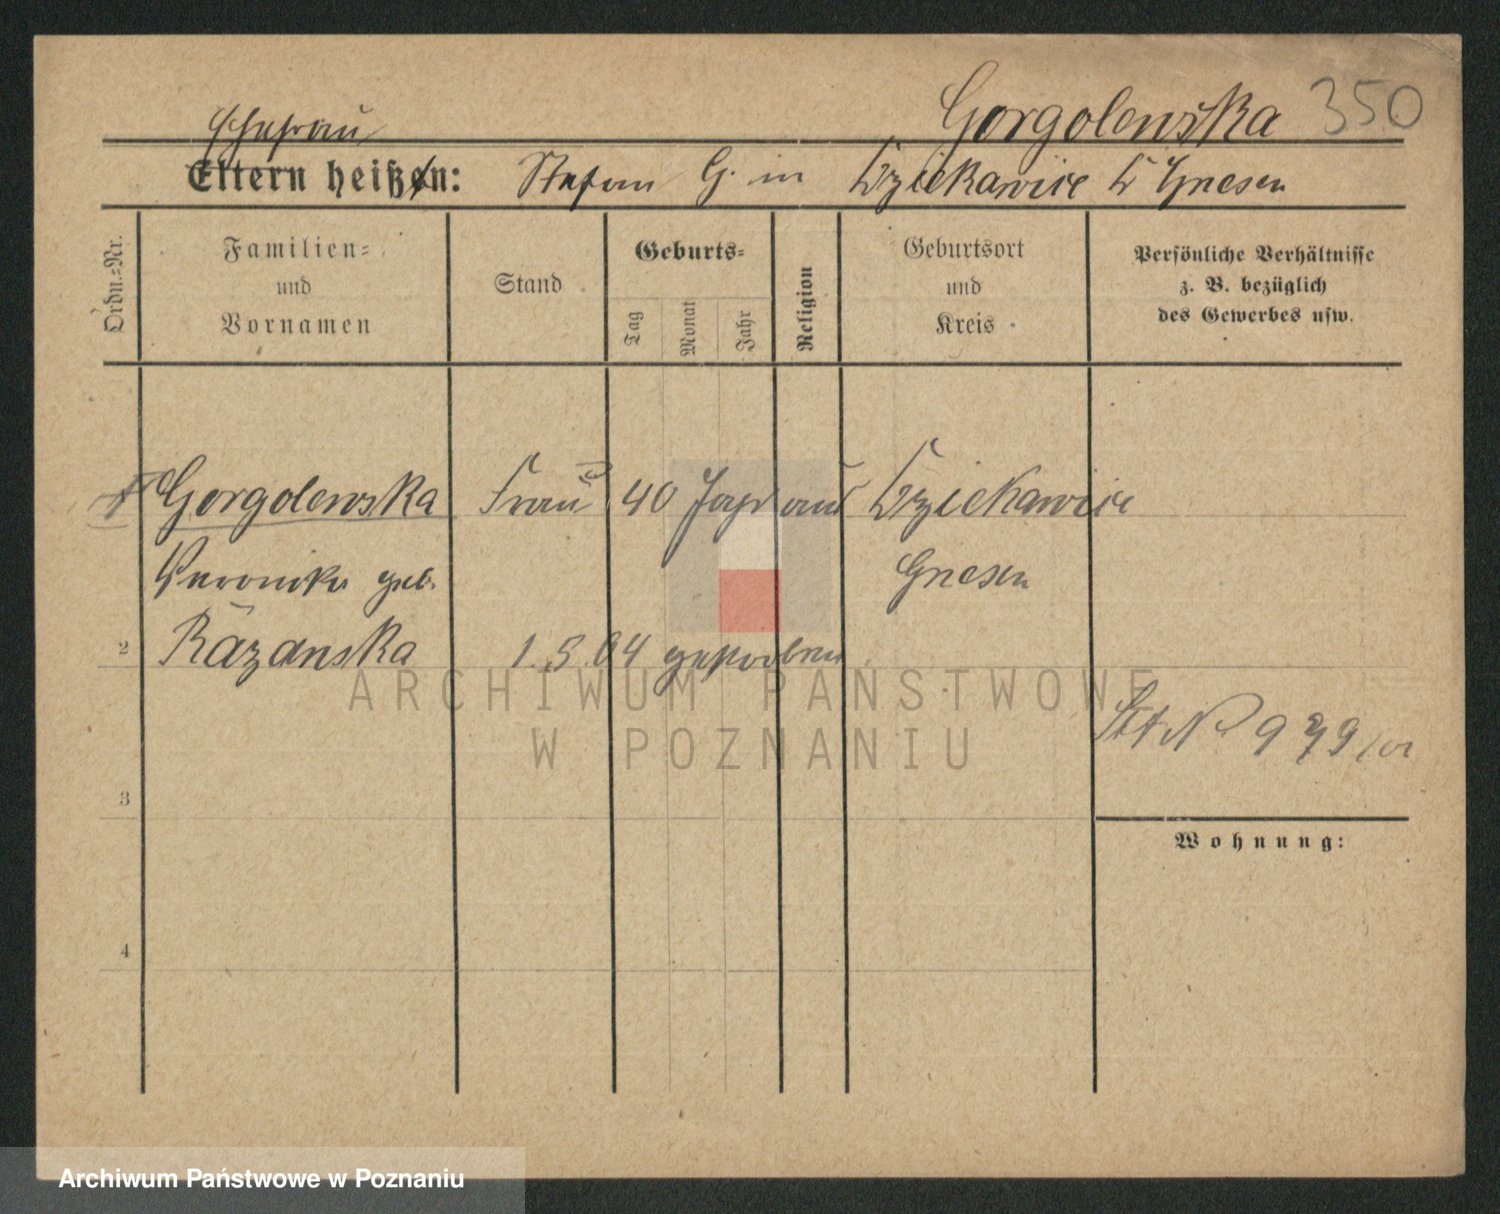 Gorgolewska 350
Ehefrau
Eltern heißen: Stefan G. in Dziekawice Kr Gnesen
Ordn.-Nr.
Familien-
und
Vornamen
Stand
Geburts-
Tag
Monat
Jahr
Religion
Geburtsort
und
Kreis
Persönliche Verhältnisse
z. B. bezüglich
des Gewerbes usw.
Gorgolewska Frau 40 Jahr aus Dziekawice
Veronika geb. Gnesen
2 Razanska 1. 04 gestorben
ARCHIWUM PAŃSTWOWE
W POZNANIU
3
Wohnung:
4
Archiwum Państwowe w Poznaniu